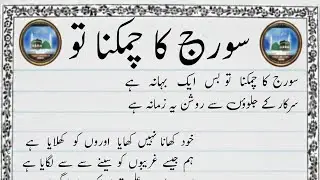 سورج کا چمکنا تو
سورج کا چمکنا تو بس ایک بہانہ ہے
سرکار کے جلوؤں سے روشن یہ زمانہ ہے
خود کھانا نہیں کھایا اوروں کو کھلایا ہے
ہم جیسے غریبوں کو سینے سے سے لگایا ہے